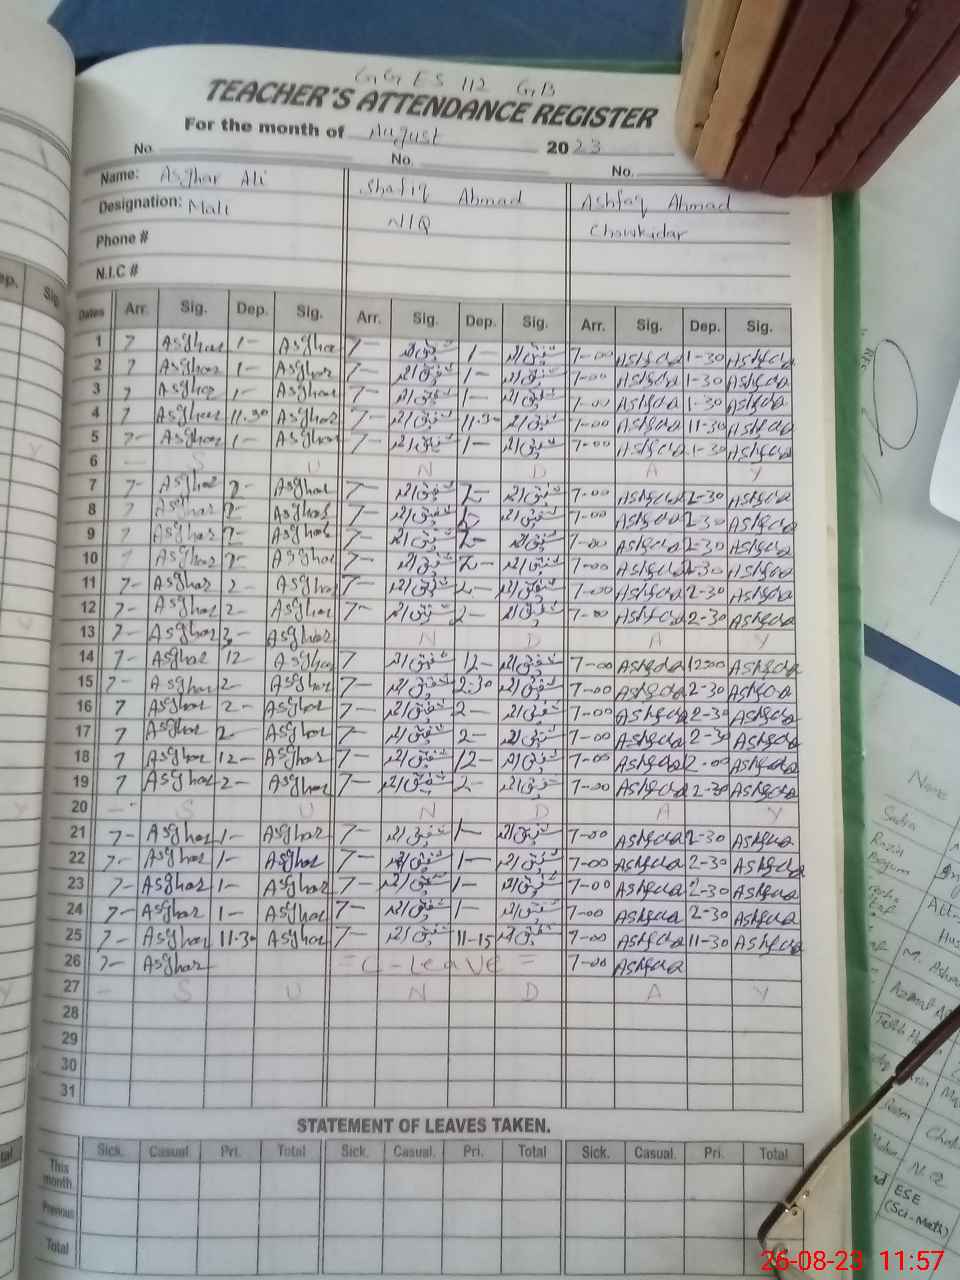 GGES 112 GB
TEACHER'S ATTENDANCE REGISTER
For the month of August 2023
No. No. No.
Name: Asghar Ali Shafiq Ahmad Ashfaq Ahmad
Designation: Mali N/Q Chowkidar
Phone #
N.I.C #
Dates Arr. Sig. Dep. Sig. Arr. Sig. Dep. Sig. Arr. Sig. Dep. Sig.
1 7 Asghar 1- Asghar 7- شفیق احمد 1- شفیق احمد 7-00 Ashfaq 1-30 Ashfaq
2 7 Asghar 1- Asghar 7- شفیق احمد 1- شفیق احمد 7-00 Ashfaq 1-30 Ashfaq
3 7 Asghar 1- Asghar 7- شفیق احمد 1- شفیق احمد 7-00 Ashfaq 1-30 Ashfaq
4 7 Asghar 11.30 Asghar 7- شفیق احمد 11.30 شفیق احمد 7-00 Ashfaq 11-30 Ashfaq
5 7- Asghar 1- Asghar 7- شفیق احمد 1- شفیق احمد 7-00 Ashfaq 1-30 Ashfaq
6 - S U N D A Y
7 7- Asghar 2- Asghar 7- شفیق احمد 2- شفیق احمد 7-00 Ashfaq 2-30 Ashfaq
8 7 Asghar 2- Asghar 7- شفیق احمد شفیق احمد 7-00 Ashfaq 2-30 Ashfaq
9 7 Asghar 2- Asghar 7- شفیق احمد 2- شفیق احمد 7-00 Ashfaq 2-30 Ashfaq
10 7 Asghar 2- Asghar 7- شفیق احمد 2- شفیق احمد 7-00 Ashfaq 2-30 Ashfaq
11 7- Asghar 2- Asghar 7- شفیق احمد 2- شفیق احمد 7-00 Ashfaq 2-30 Ashfaq
12 7- Asghar 2- Asghar 7- شفیق احمد 2- شفیق احمد 7-00 Ashfaq 2-30 Ashfaq
13 7- Asghar 2- Asghar N D A Y
14 7- Asghar 12- Asghar 7 شفیق احمد 12- شفیق احمد 7-00 Ashfaq 12-00 Ashfaq
15 7- Asghar 2- Asghar 7- شفیق احمد 2-30 شفیق احمد 7-00 Ashfaq 2-30 Ashfaq
16 7 Asghar 2- Asghar 7- شفیق احمد 2- شفیق احمد 7-00 Ashfaq 2-30 Ashfaq
17 7 Asghar 2- Asghar 7- شفیق احمد 2- شفیق احمد 7-00 Ashfaq 2-30 Ashfaq
18 7 Asghar 12- Asghar 7- شفیق احمد 12- شفیق احمد 7-00 Ashfaq 2-00 Ashfaq
19 7 Asghar 2- Asghar 7- شفیق احمد 2- شفیق احمد 7-00 Ashfaq 2-30 Ashfaq
20 - S U N D A Y
21 7- Asghar 1- Asghar 7- شفیق احمد 1- شفیق احمد 7-00 Ashfaq 2-30 Ashfaq
22 7- Asghar 1- Asghar 7- شفیق احمد 1- شفیق احمد 7-00 Ashfaq 2-30 Ashfaq
23 7- Asghar 1- Asghar 7- شفیق احمد 1- شفیق احمد 7-00 Ashfaq 2-30 Ashfaq
24 7- Asghar 1- Asghar 7- شفیق احمد 1- شفیق احمد 7-00 Ashfaq 2-30 Ashfaq
25 7- Asghar 11-30 Asghar 7- شفیق احمد 11-15 شفیق احمد 7-00 Ashfaq 11-30 Ashfaq
26 7- Asghar = C-Leave = 7-00 Ashfaq
27 - S U N D A Y
28
29
30
31
STATEMENT OF LEAVES TAKEN.
Sick. Casual Pri. Total Sick. Casual. Pri. Total Sick. Casual. Pri. Total
This month
Previous
Total
Name
N.Q
ESE
(Sci-Math)
26-08-23 11:57